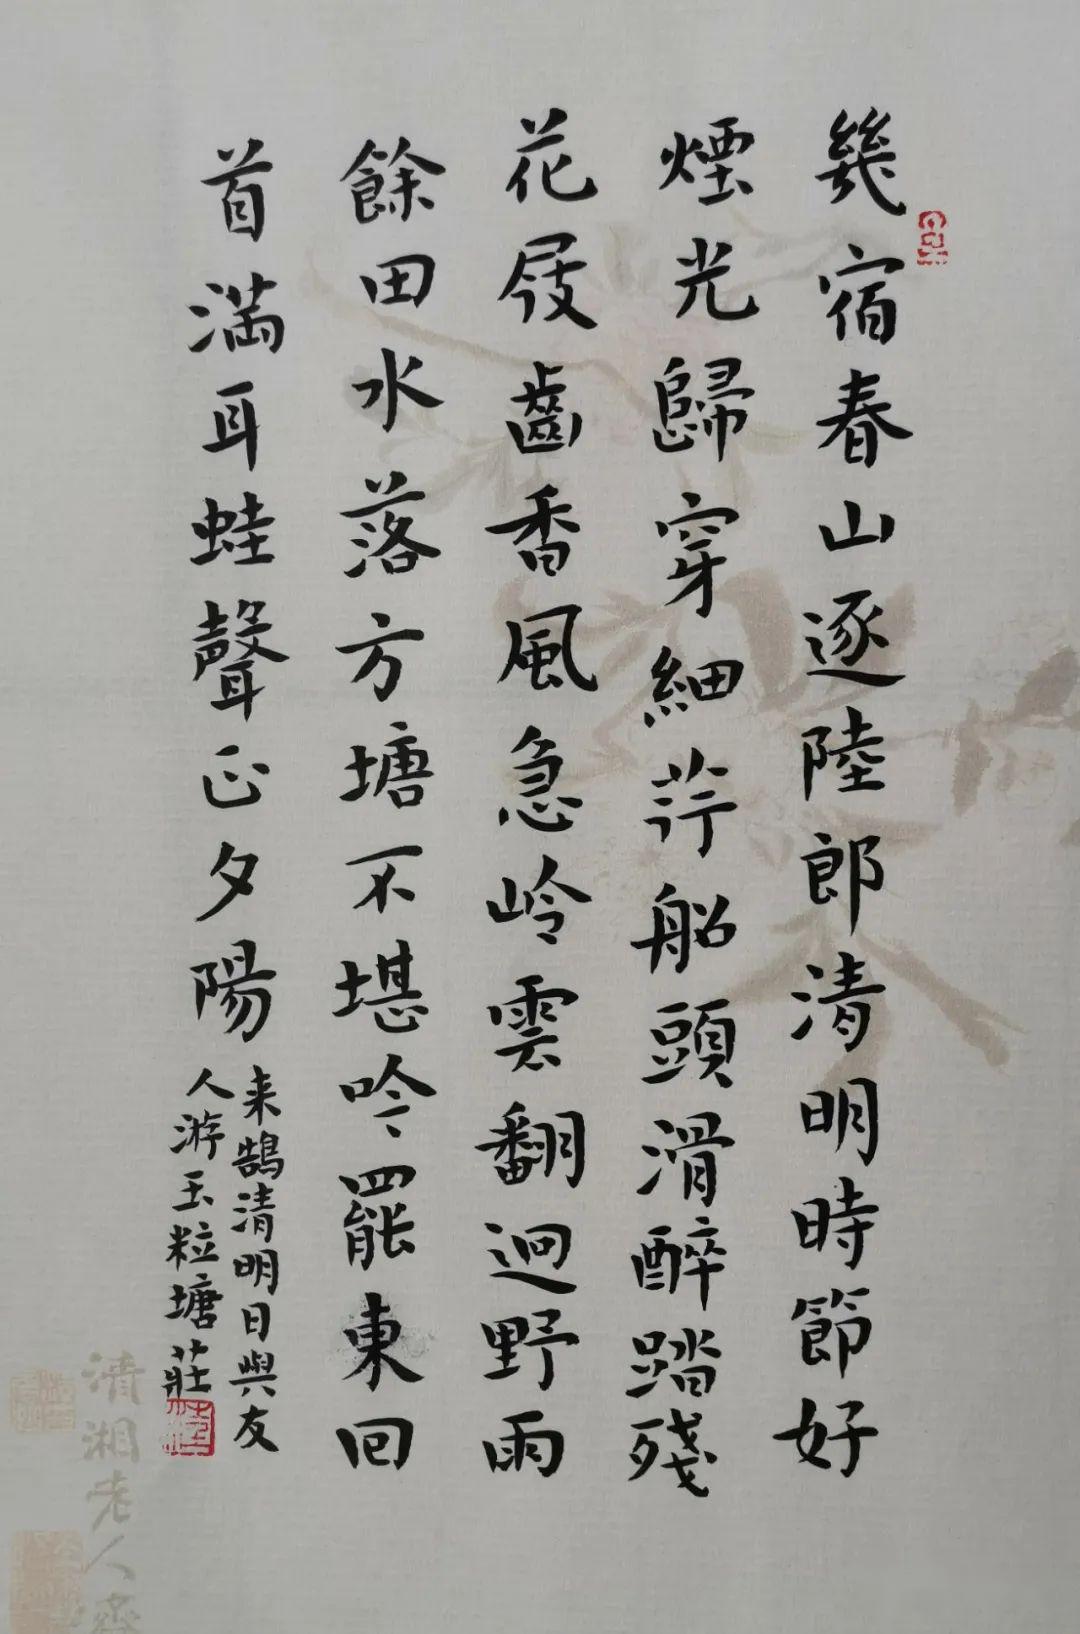 幾宿春山逐陸郎清明時節好
煙光歸穿細荇船頭滑醉踏殘
花屐齒香風急嶺雲翻迥野雨
餘田水落方塘不堪吟罷東回
首滿耳蛙聲正夕陽
来鵠清明日與友
人游玉粒塘莊
清湘老人